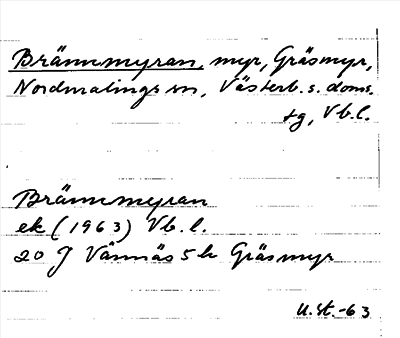 Brännmyran, myr, Gräsmyr,
Nordmalings sn, Västerb. s. doms.
tg, Vb.l.
Brännmyran
ek (1963) Vb. l.
20 J Vännäs 5 h Gräsmyr
U.St.-63